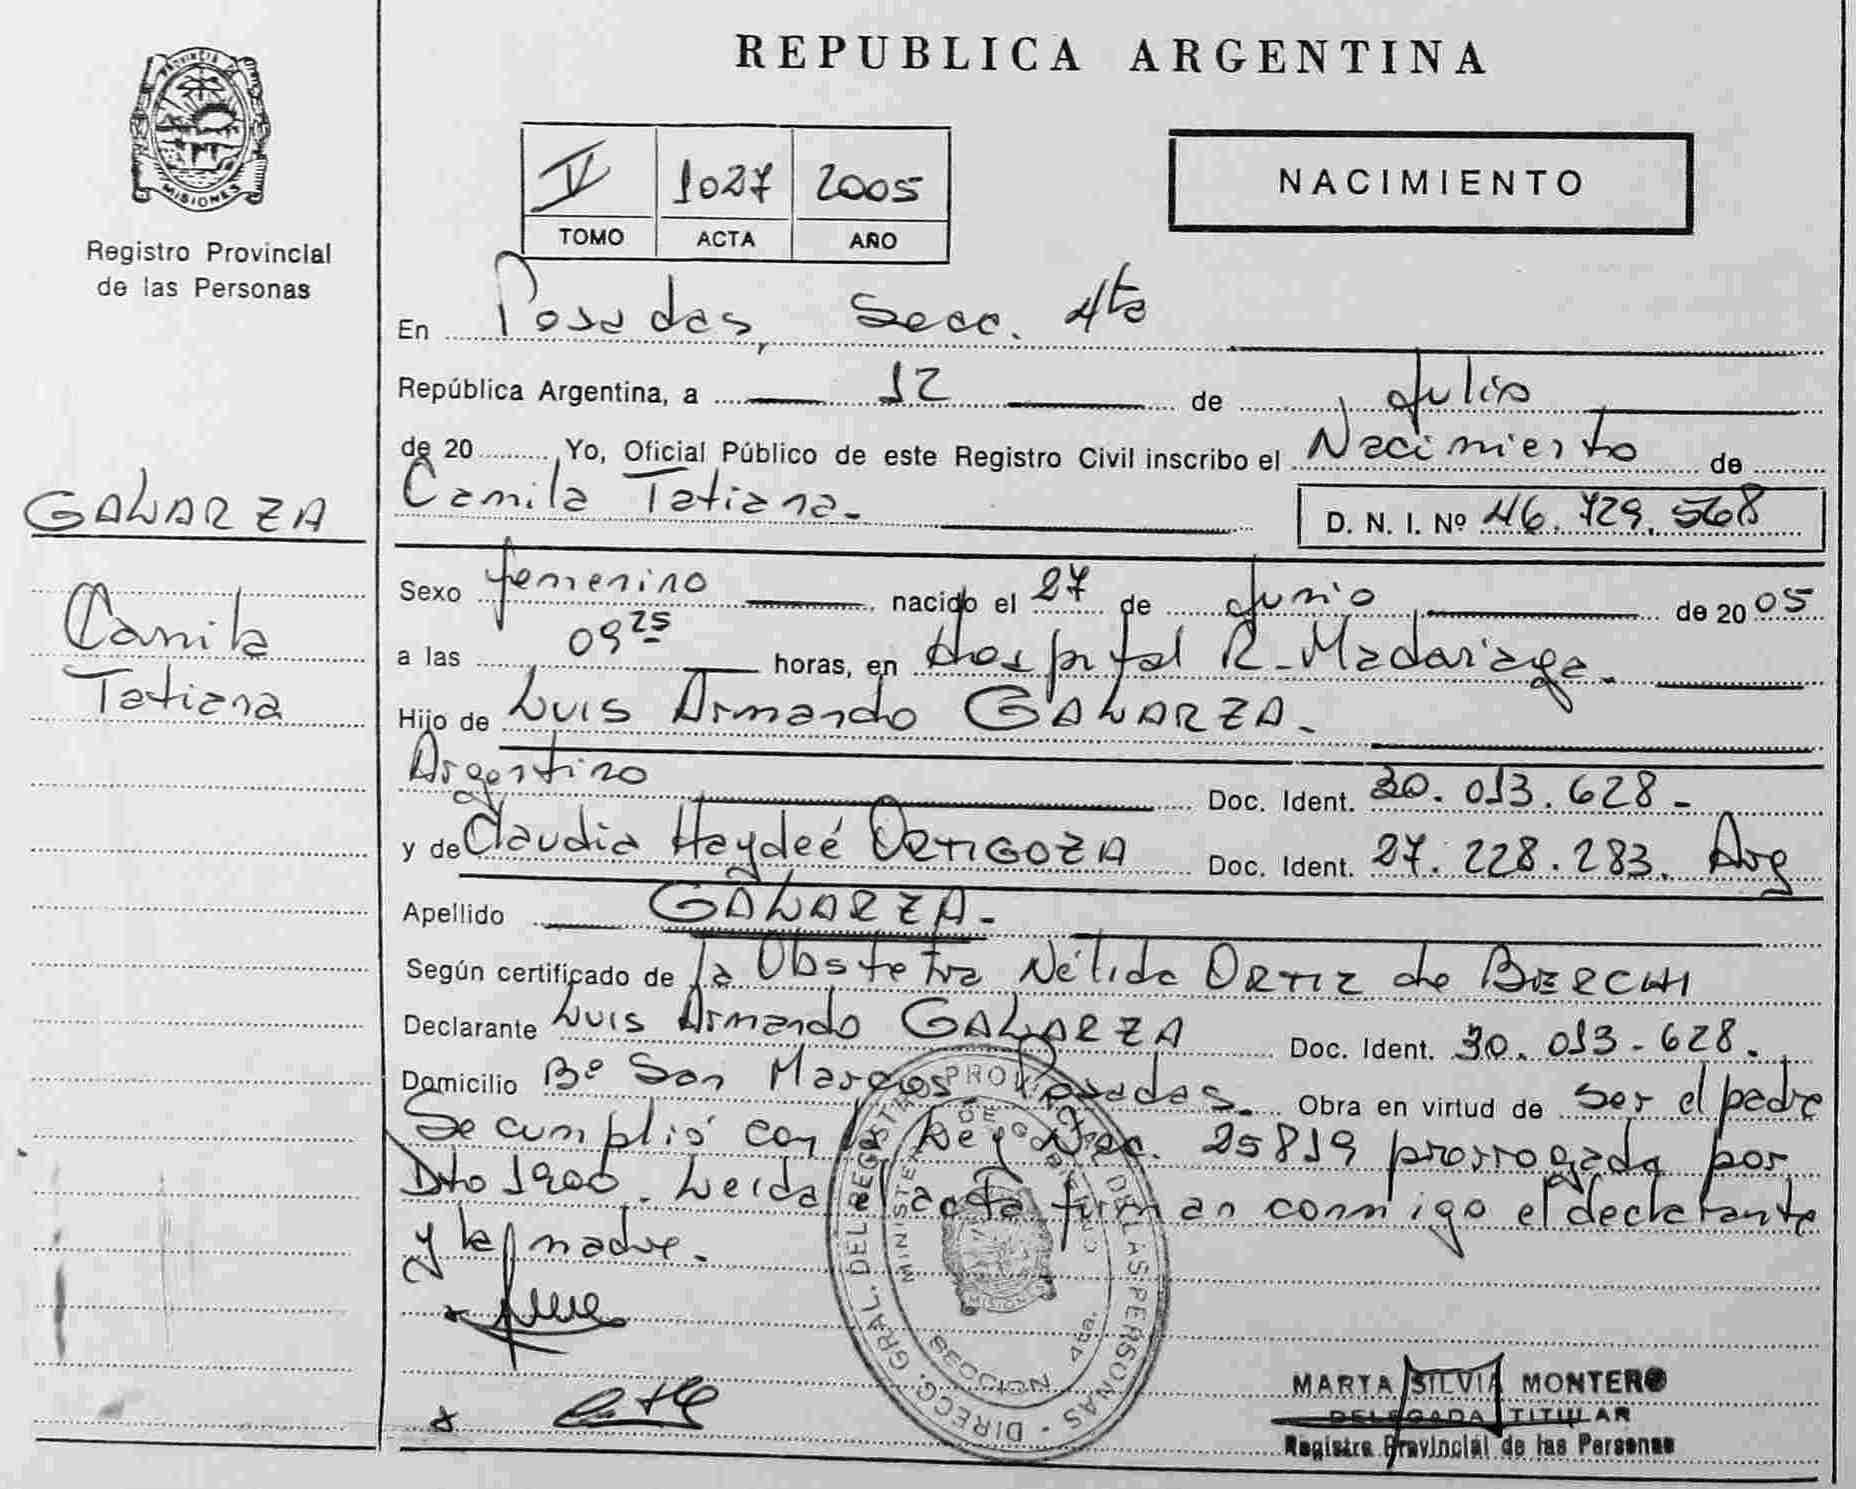 PROVINCIA DE
MISIONES
Registro Provincial
de las Personas
GALARZA
Camila
Tatiana
REPUBLICA ARGENTINA
V 1027 2005
TOMO ACTA AÑO
NACIMIENTO
En Posadas, Secc. 4ta
República Argentina, a 12 de Julio
de 20 Yo, Oficial Público de este Registro Civil inscribo el Nacimiento de
Camila Tatiana. D. N. I. Nº 46.729.568
Sexo femenino nacido el 27 de Junio de 2005
a las 09 25 horas, en Hospital R. Madariaga.
Hijo de Luis Armando GALARZA.
Argentino Doc. Ident. 30.013.628-
y de Claudia Haydeé ORTIGOZA Doc. Ident. 27.228.283. Arg
Apellido GALARZA.
Según certificado de la Obstetra Nélida ORTIZ de BIERCHI
Declarante Luis Armando GALARZA Doc. Ident. 30.013-628.
Domicilio Bº San Marcos Posadas. Obra en virtud de ser el padre
Se cumplió con la Ley Nac. 25819 prorrogada por
Dto 1900. Leida el acta firman conmigo el declarante
y la madre.
DIRECG. GRAL. DEL REGISTRO PROVINCIAL DE LAS PERSONAS
MINISTERIO DE GOBIERNO
MISIONES
SECCION 4ta.
MARTA SILVIA MONTERO
DELEGADA TITULAR
Registro Provincial de las Personas